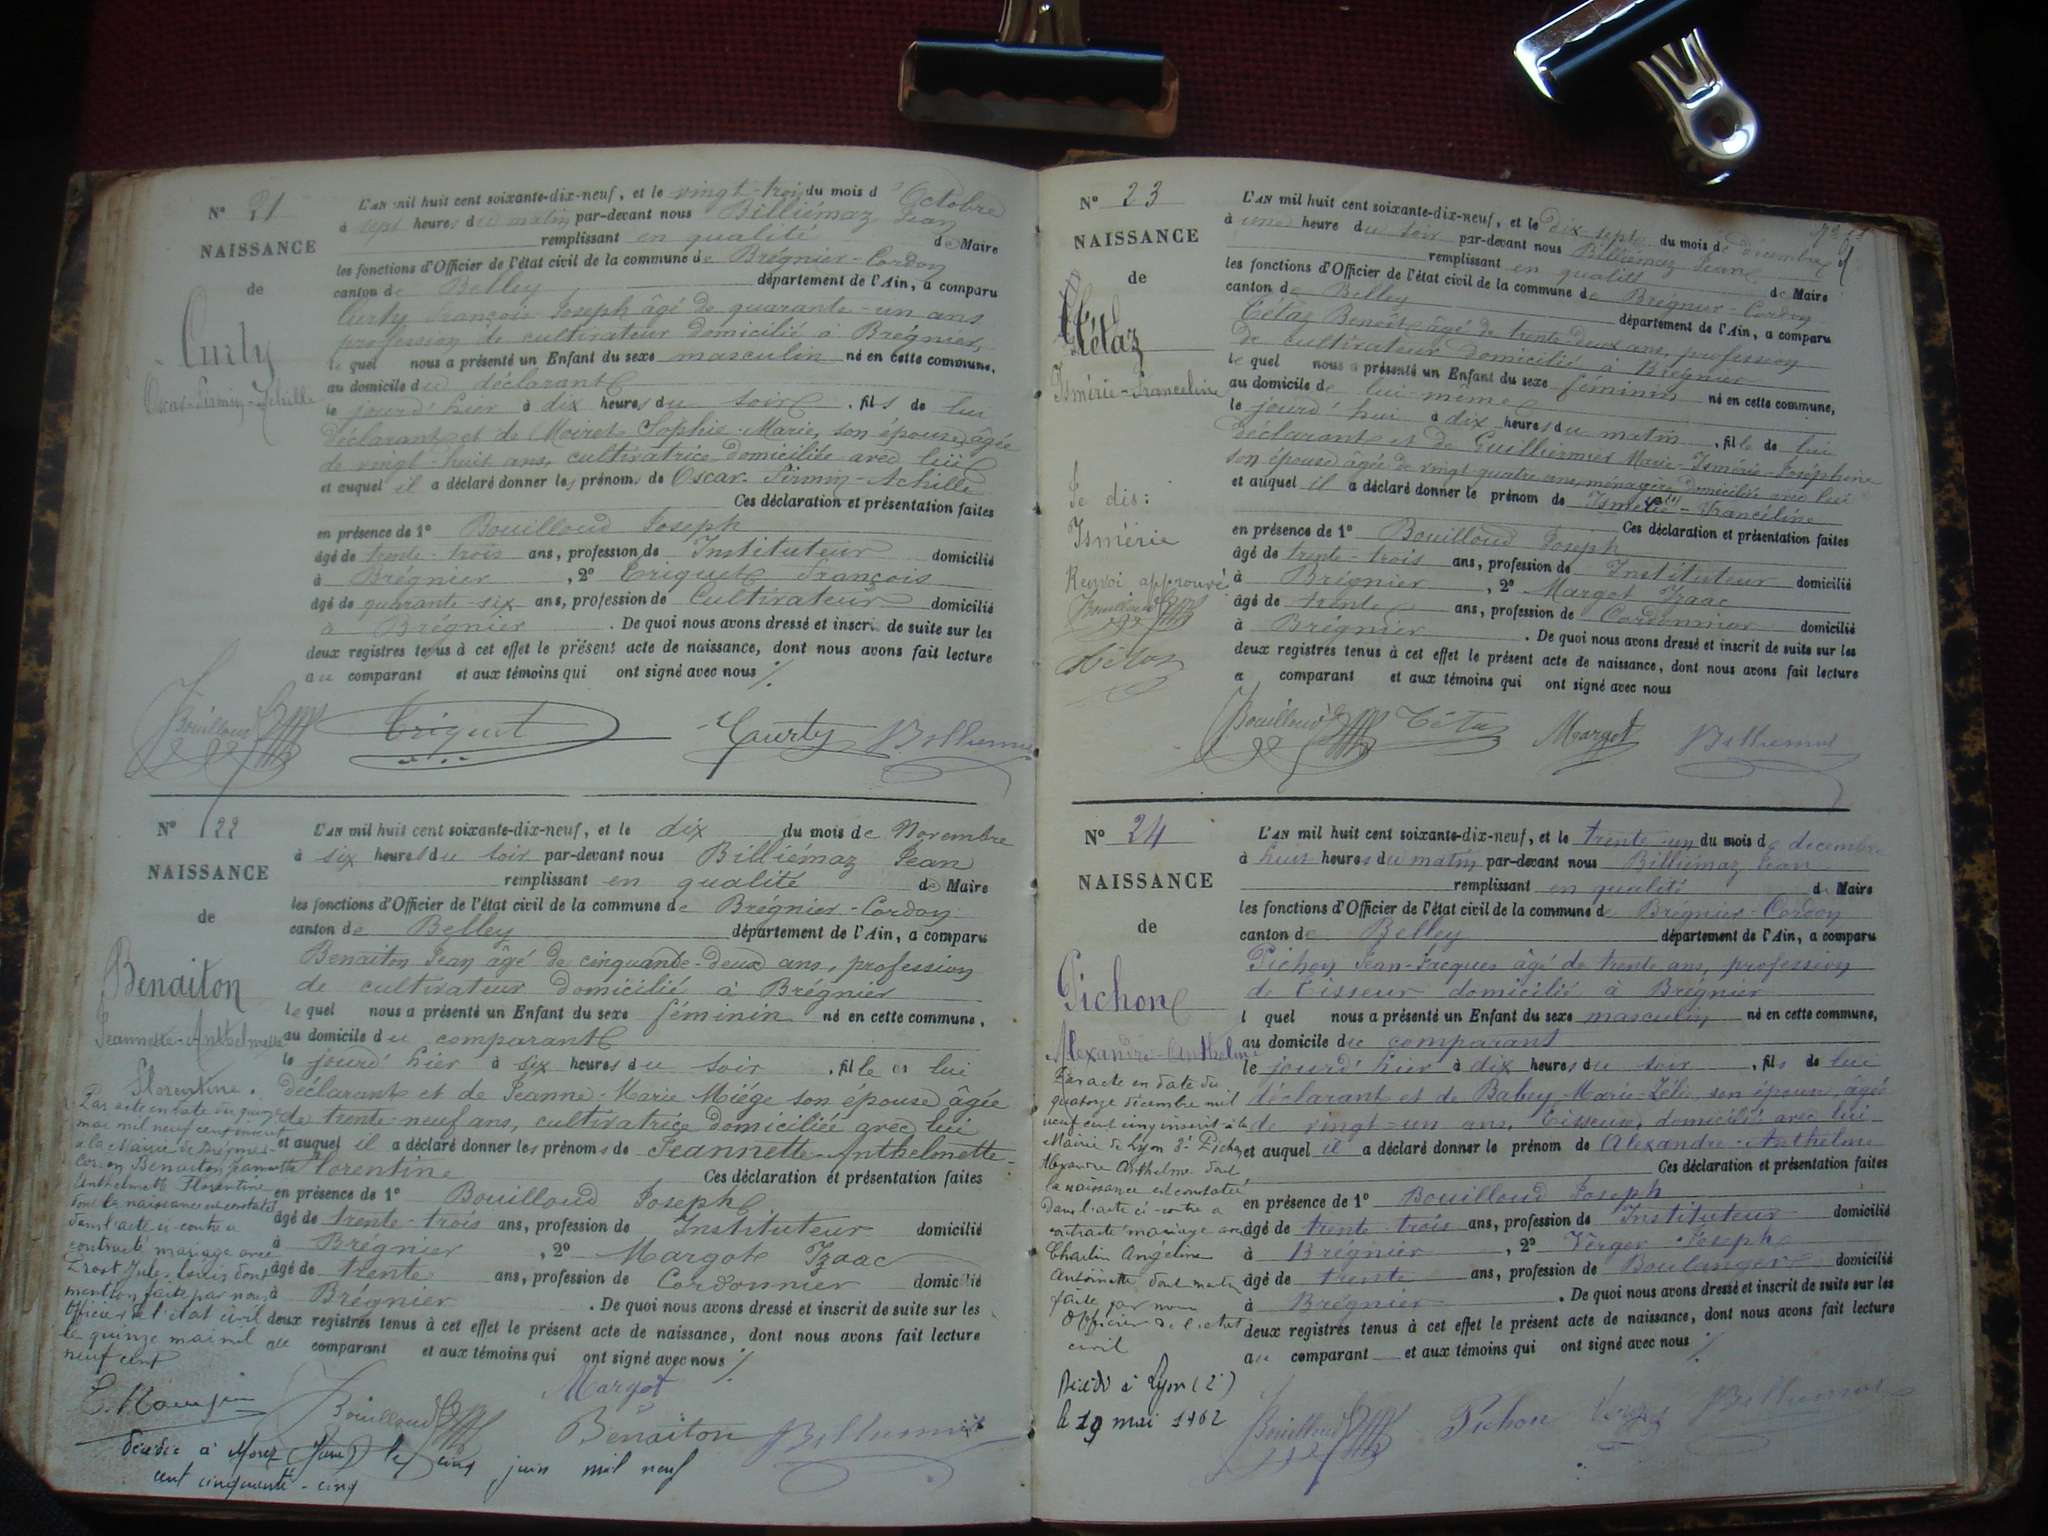 N° 21
NAISSANCE
de
Curty
Oscar-Firmin-Achille
L'AN mil huit cent soixante-dix-neuf, et le vingt-trois du mois d'Octobre
à sept heures du matin par-devant nous Billiémaz Jean
remplissant en qualité de Maire
les fonctions d'Officier de l'état civil de la commune de Brégnier-Cordon
canton de Belley département de l'Ain, a comparu
Curty François Joseph âgé de quarante-un ans
profession de cultivateur domicilié à Brégnier,
le quel nous a présenté un Enfant du sexe masculin né en cette commune,
au domicile du déclarant
le jourd'hier à dix heures du soir, fils de lui
déclarant et de Moiret Sophie-Marie, son épouse, âgée
de vingt-huit ans, cultivatrice domiciliée avec lui
et auquel il a déclaré donner les prénoms de Oscar-Firmin-Achille
Ces déclaration et présentation faites
en présence de 1° Bouilloud Joseph
âgé de trente-trois ans, profession de Instituteur domicilié
à Brégnier, 2° Triquet François
âgé de quarante-six ans, profession de Cultivateur domicilié
à Brégnier. De quoi nous avons dressé et inscrit de suite sur les
deux registres tenus à cet effet le présent acte de naissance, dont nous avons fait lecture
au comparant et aux témoins qui ont signé avec nous
Bouilloud Triquet Curty Billiemaz
N° 22
NAISSANCE
de
Benaiton
Jeannette-Anthelmette
Florentine.
L'AN mil huit cent soixante-dix-neuf, et le dix du mois de Novembre
à six heures du soir par-devant nous Billiémaz Jean
remplissant en qualité de Maire
les fonctions d'Officier de l'état civil de la commune de Brégnier-Cordon
canton de Belley département de l'Ain, a comparu
Benaiton Jean âgé de cinquante-deux ans, profession
de cultivateur domicilié à Brégnier
le quel nous a présenté un Enfant du sexe féminin né en cette commune,
au domicile du comparant
le jourd'hier à six heures du soir, fille de lui
déclarant et de Jeanne-Marie Miége son épouse âgée
de trente-neuf ans, cultivatrice domiciliée avec lui
et auquel il a déclaré donner les prénoms de Jeannette-Anthelmette-
Florentine Ces déclaration et présentation faites
en présence de 1° Bouilloud Joseph
âgé de trente-trois ans, profession de Instituteur domicilié
à Brégnier, 2° Margot Izaac
âgé de trente ans, profession de Cordonnier domicilié
à Brégnier. De quoi nous avons dressé et inscrit de suite sur les
deux registres tenus à cet effet le présent acte de naissance, dont nous avons fait lecture
au comparant et aux témoins qui ont signé avec nous
Par acte en date du quinze
mai mil neuf cent inscrit
à la Mairie de Brégnier-
Cordon Benaiton Jeannette
Anthelmette Florentine
dont la naissance est constatée
dans l'acte ci-contre a
contracté mariage avec
Jules Louis dont
mention faite par nous
Officier de l'état civil
le quinze mai mil
neuf cent
Margot
Bouilloud Benaiton Billiemaz
décédée à Morez (Jura) le cinq juin mil neuf
cent cinquante-cinq
N° 23
NAISSANCE
de
Tétaz
Ismérie-Franceline
L'AN mil huit cent soixante-dix-neuf, et le dix-sept du mois de décembre
à une heure du soir par-devant nous Billiémaz Jean
remplissant en qualité de Maire
les fonctions d'Officier de l'état civil de la commune de Brégnier-Cordon
canton de Belley département de l'Ain, a comparu
Tétaz Benoît âgé de trente-deux ans, profession
de cultivateur domicilié à Brégnier
le quel nous a présenté un Enfant du sexe féminin né en cette commune,
au domicile de lui-même
le jourd'hui à dix heures du matin, fille de lui
déclarant et de Guillermet Marie-Ismérie-Joséphine
son épouse âgée de vingt quatre ans, ménagère domiciliée avec lui
et auquel il a déclaré donner le prénom de Ismérie-Franceline
Ces déclaration et présentation faites
en présence de 1° Bouilloud Joseph
âgé de trente-trois ans, profession de Instituteur domicilié
à Brégnier, 2° Margot Izaac
âgé de trente ans, profession de Cordonnier domicilié
à Brégnier. De quoi nous avons dressé et inscrit de suite sur les
deux registres tenus à cet effet le présent acte de naissance, dont nous avons fait lecture
a comparant et aux témoins qui ont signé avec nous
Je dis:
Ismérie
Renvoi approuvé
Bouilloud
Tétaz
Bouilloud Tétaz Margot Billiemaz
N° 24
NAISSANCE
de
Pichon
Alexandre-Anthelme
L'AN mil huit cent soixante-dix-neuf, et le trente-un du mois de décembre
à huit heures du matin par-devant nous Billiémaz Jean
remplissant en qualité de Maire
les fonctions d'Officier de l'état civil de la commune de Brégnier-Cordon
canton de Belley département de l'Ain, a comparu
Pichon Jean-Jacques âgé de trente ans, profession
de Tisseur domicilié à Brégnier
l quel nous a présenté un Enfant du sexe masculin né en cette commune,
au domicile du comparant
le jourd'hier à dix heures du soir, fils de lui
déclarant et de Babey Marie-Zélie, son épouse, âgée
de vingt-un ans, Tisseuse, domiciliée avec lui
et auquel il a déclaré donner le prénom de Alexandre-Anthelme
Ces déclaration et présentation faites
en présence de 1° Bouilloud Joseph
âgé de trente-trois ans, profession de Instituteur domicilié
à Brégnier, 2° Verger Joseph
âgé de trente ans, profession de Boulanger domicilié
à Brégnier. De quoi nous avons dressé et inscrit de suite sur les
deux registres tenus à cet effet le présent acte de naissance, dont nous avons fait lecture
au comparant et aux témoins qui ont signé avec nous
Par acte en date du
quatorze décembre mil
neuf cent cinq inscrit à la
Mairie de Lyon 3e Pichon
Alexandre Anthelme dont
la naissance est constatée
dans l'acte ci-contre a
contracté mariage avec
Charlin Angéline
Antoinette dont mention
faite par nous
Officier de l'état
civil
Décédé à Lyon (2e)
le 19 mai 1962
Bouilloud Pichon Verger Billiemaz